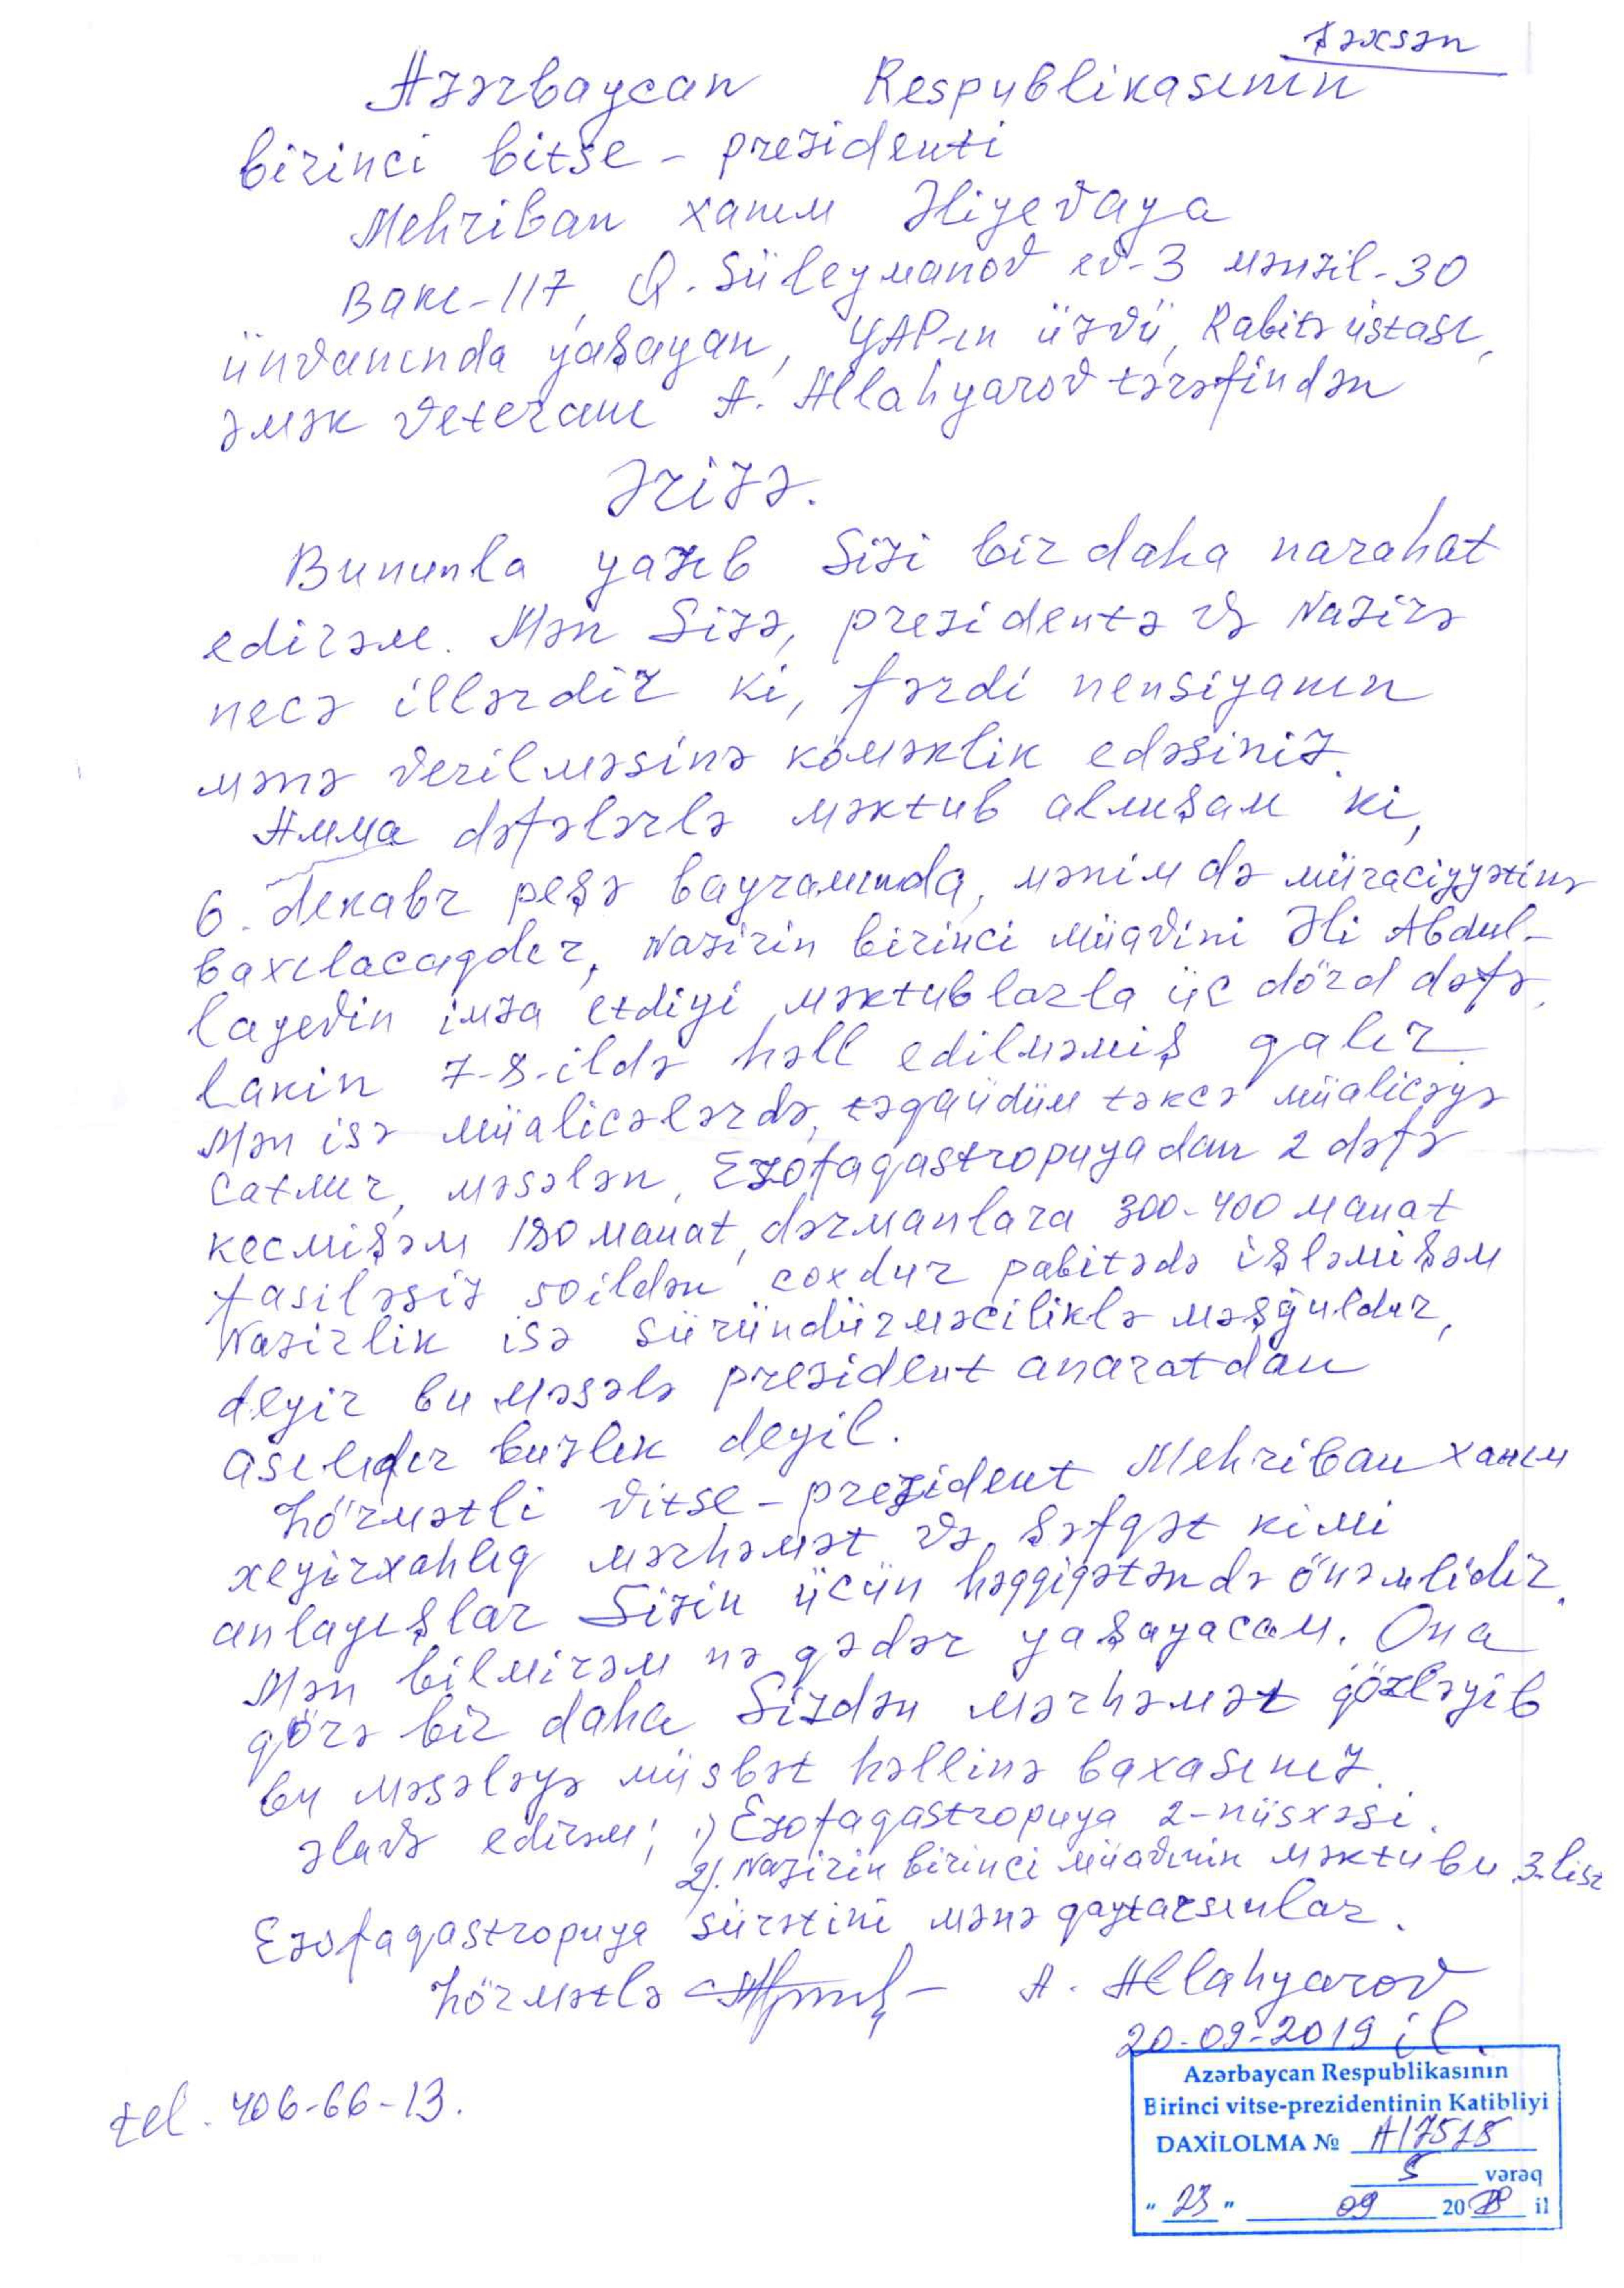 Şəxsən
Azərbaycan Respublikasının
birinci bitse-prezidenti
Mehriban xanım Əliyevaya
Bakı-117, Q. Süleymanov ev-3 mənzil-30
ünvanında yaşayan, YAP-ın üzvü, Rabitə üstası,
əmək veteranı A. Allahyarov tərəfindən
Ərizə.
Bununla yazıb Sizi bir daha narahat
edirəm. Mən Sizə, prezidentə və Nazirə
necə illərdir ki, fərdi pensiyanın
mənə verilməsinə köməklik edəsiniz.
Amma dəfələrlə məktub almışam ki,
6. dekabr peşə bayramında, mənim də müraciyyətinə
baxılacaqdır, Nazirin birinci müavini Əli Abdul-
layevin imza etdiyi məktublarla üc dörd dəfə,
lakin 7-8-ildə həll edilməmiş qalır.
Mən isə müalicələrdə, təqaüdüm təkcə müalicəyə
catmır, məsələn, Ezofaqastropuyadan 2 dəfə
kecmişəm 180 manat, dərmanlara 300-400 manat
fasiləsiz 50 ildən coxdur rabitədə işləmişəm
Nazirlik isə süründürməciliklə məşğuldur,
deyir bu məsələ prezident aparatdan
asılıdır buzlık deyil.
hörmətli vitse-prezident Mehriban xanım
xeyirxahlıq mərhəmət və şəfqət kimi
anlayışlar Sizin ücün həqqiqətəndə önəmlidir.
Mən bilmirəm nə qədər yaşayacam. Ona
görə bir daha Sizdən mərhəmət gözləyib
bu məsələyə müsbət həllinə baxasınız.
əlavə edirəm; 1) Ezofaqastropuya 2-nüsxəsi.
2). Nazirin birinci müavinin məktubu 3-list
Ezofaqastropuya sürətini mənə qaytarsınlar.
hörmətlə A. Allahyarov
20-09-2019 il.
tel. 406-66-13.
Azərbaycan Respublikasının
Birinci vitse-prezidentinin Katibliyi
DAXİLOLMA № A17515
5 vərəq
"23" 09 20 il